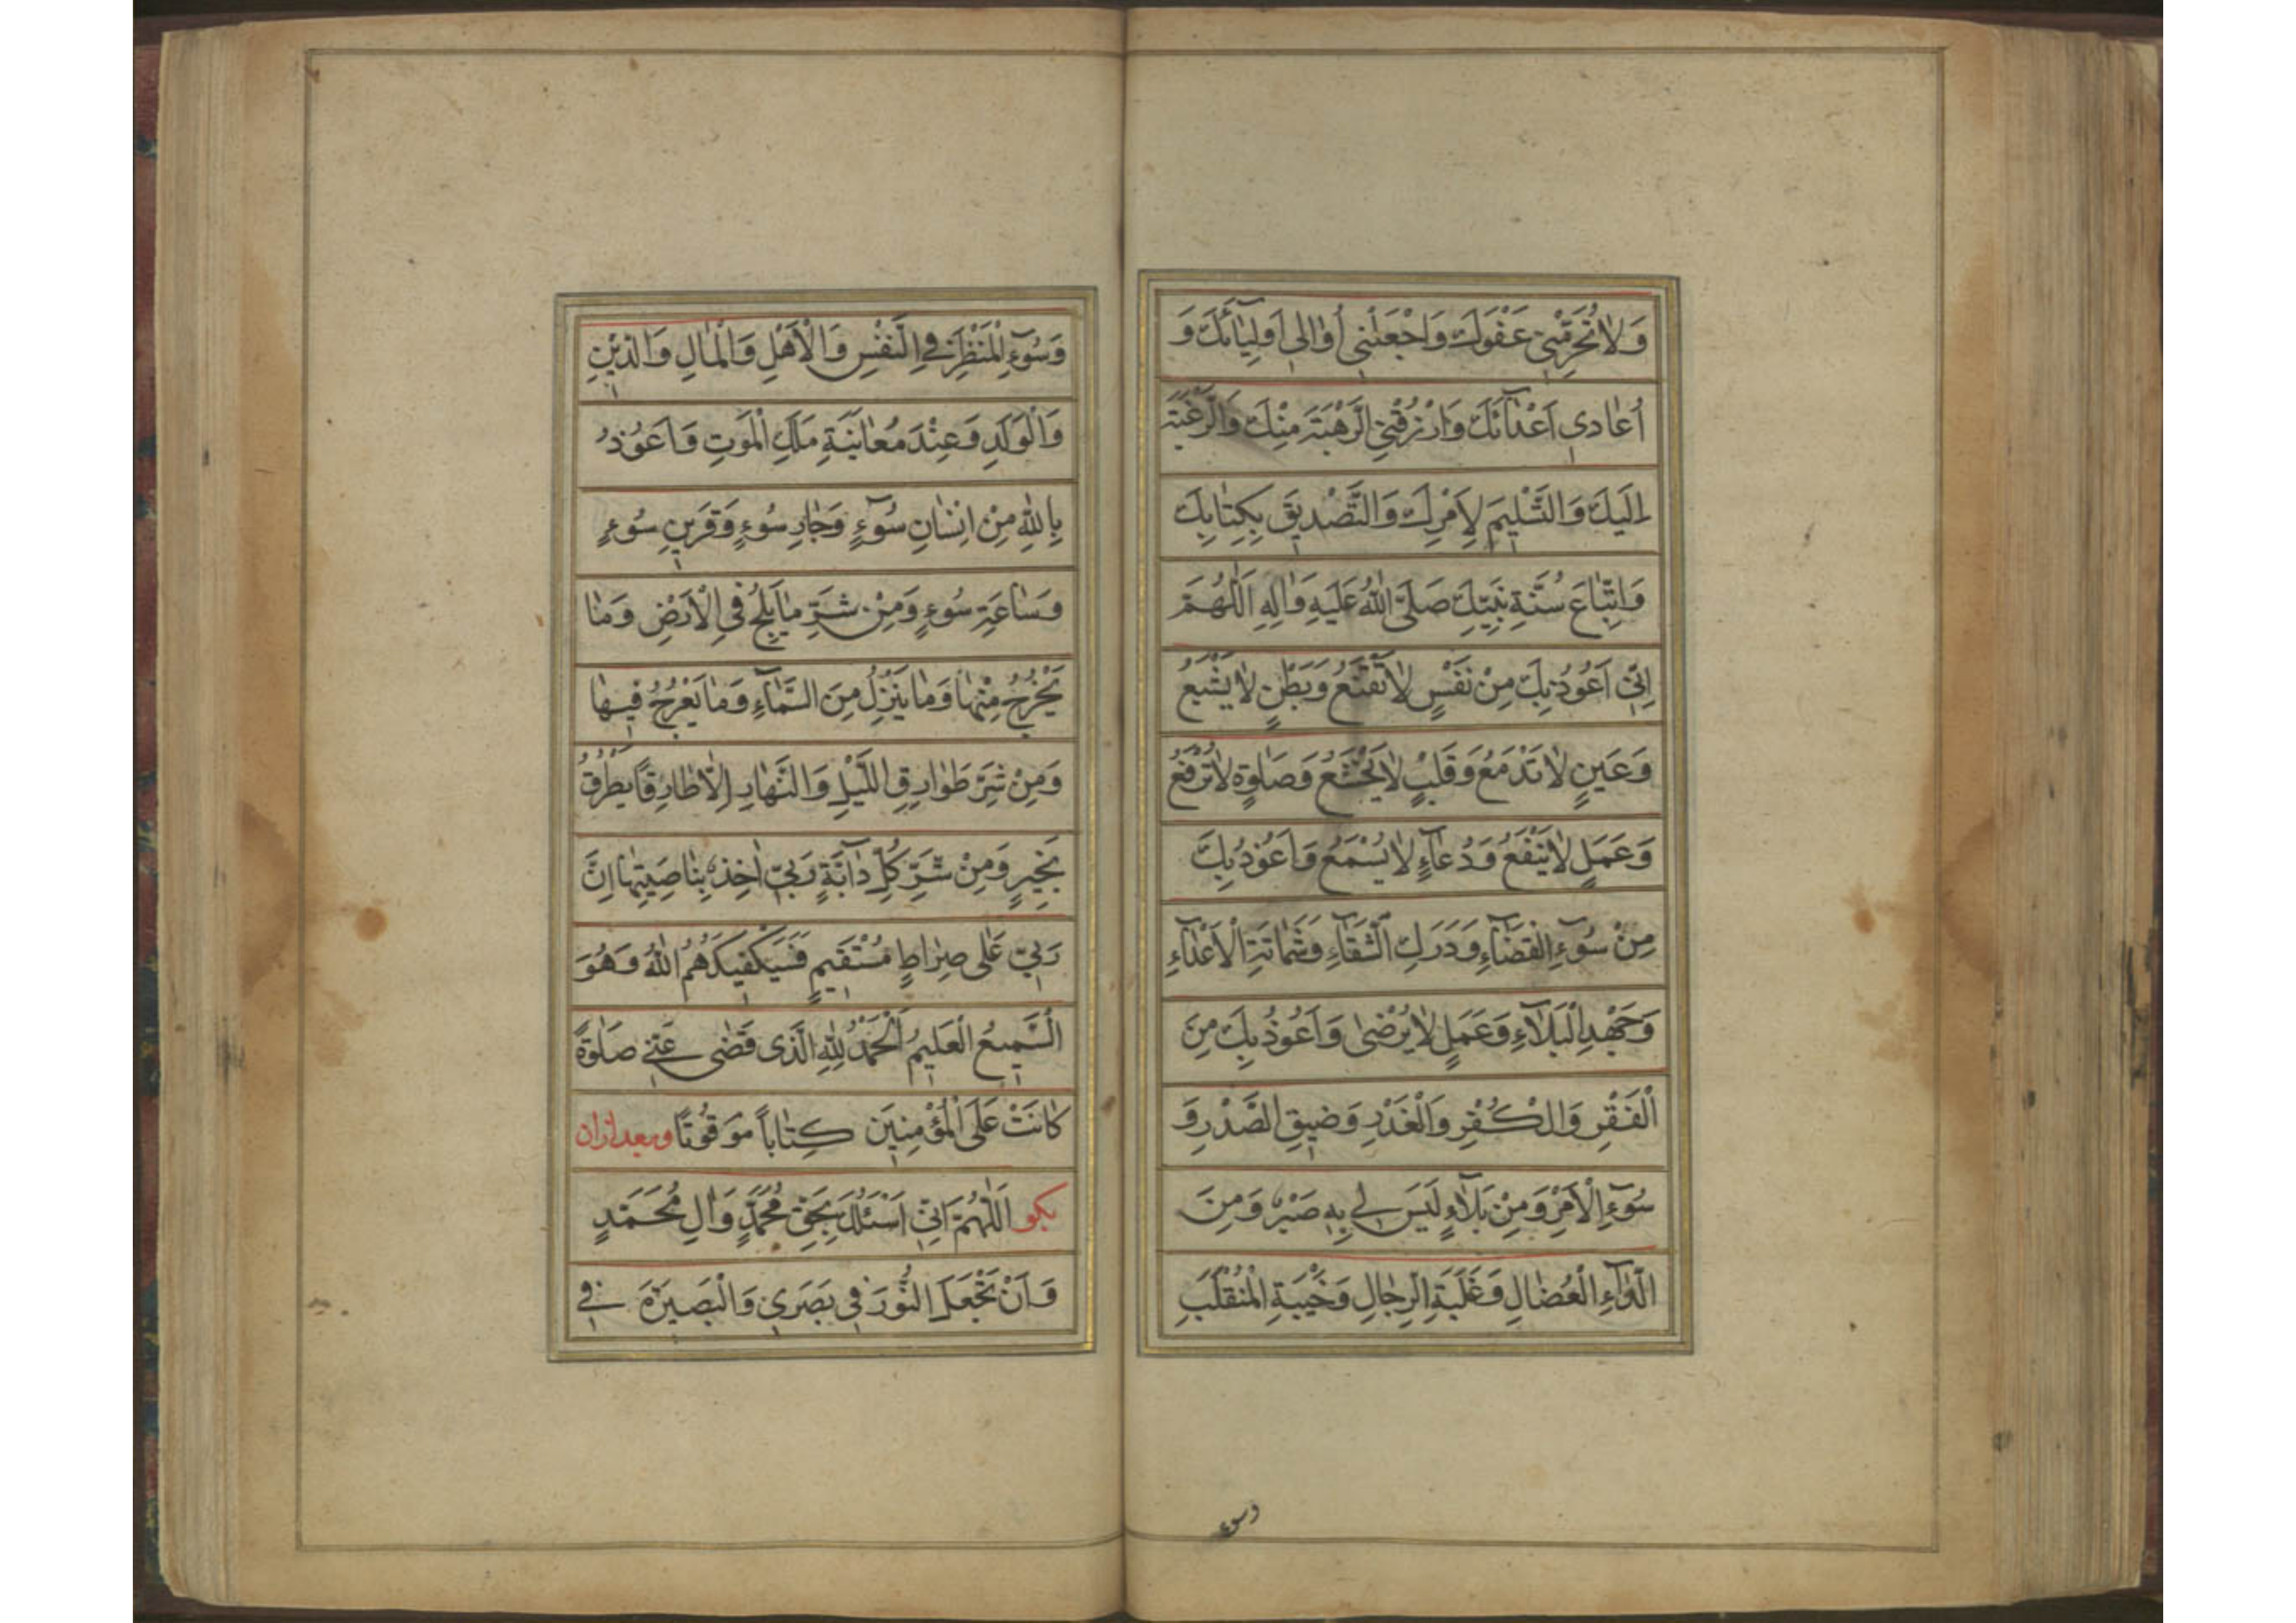 وَلاٰ تُحَرِّقْنِي عَفْوَكَ وَاجْعَلْنِي أُوٰالِي اَوْلِيٰآئَكَ وَ
اُعٰادِي اَعْدٰآئَكَ وَارْزُقْنِي الرَّهْبَةَ مِنْكَ وَالرَّغْبَةَ
اِلَيْكَ وَالتَّسْلِيمَ لِاَمْرِكَ وَالتَّصْدِيقَ بِكِتٰابِكَ
وَاتِّبٰاعَ سُنَّةِ نَبِيِّكَ صَلَّى اللهُ عَلَيْهِ وَاٰلِهِ اَللّٰهُمَّ
اِنِّي اَعُوذُ بِكَ مِنْ نَفْسٍ لاٰ تَقْنَعُ وَبَطْنٍ لاٰ يَشْبَعُ
وَعَيْنٍ لاٰ تَدْمَعُ وَقَلْبٍ لاٰ يَخْشَعُ وَصَلٰوةٍ لاٰ تُرْفَعُ
وَعَمَلٍ لاٰ يَنْفَعُ وَدُعٰآءٍ لاٰ يُسْمَعُ وَاَعُوذُ بِكَ
مِنْ سُوٓءِ الْقَضٰآءِ وَدَرَكِ الشَّقٰآءِ وَشَمٰاتَةِ الْاَعْدٰآءِ
وَجَهْدِ الْبَلآٰءِ وَعَمَلٍ لاٰ يُرْضىٰ وَاَعُوذُ بِكَ مِنَ
الْفَقْرِ وَالْكُفْرِ وَالْغَدْرِ وَضِيقِ الصَّدْرِ وَ
سُوٓءِ الْاَمْرِ وَمِنْ بَلآٰءٍ لَيْسَ لِي بِهِ صَبْرٌ وَمِنَ
الدّٰآءِ الْعُضٰالِ وَغَلَبَةِ الرِّجٰالِ وَخَيْبَةِ الْمُنْقَلَبِ
وسوء
وَسُوٓءِ الْمَنْظَرِ فِي النَّفْسِ وَالْاَهْلِ وَالْمٰالِ وَالدِّيْنِ
وَالْوَلَدِ وَعِنْدَ مُعٰايَنَةِ مَلَكِ الْمَوْتِ وَاَعُوذُ
بِاللهِ مِنْ اِنْسٰانِ سُوٓءٍ وَجٰارِ سُوءٍ وَقَرِينِ سُوءٍ
وَسٰاعَةِ سُوءٍ وَمِنْ شَرِّ مٰا يَلِجُ فِي الْاَرْضِ وَمٰا
يَخْرُجُ مِنْهٰا وَمٰا يَنْزِلُ مِنَ السَّمٰآءِ وَمٰا يَعْرُجُ فِيهٰا
وَمِنْ شَرِّ طَوٰارِقِ اللَّيْلِ وَالنَّهٰارِ اِلاّٰ طٰارِقًا يَطْرُقُ
بِخَيْرٍ وَمِنْ شَرِّ كُلِّ دٰآبَّةٍ رَبِّي اٰخِذٌ بِنٰاصِيَتِهٰا اِنَّ
رَبِّي عَلىٰ صِرٰاطٍ مُسْتَقِيمٍ فَسَيَكْفِيكَهُمُ اللهُ وَهُوَ
السَّمِيعُ الْعَلِيمُ اَلْحَمْدُ لِلّٰهِ الَّذِي قَضىٰ عَنِّي صَلٰوةً
كٰانَتْ عَلَى الْمُؤْمِنِينَ كِتٰاباً مَوْقُوتًا وبعد ازان
بگو اَللّٰهُمَّ اِنِّي اَسْئَلُكَ بِحَقِّ مُحَمَّدٍ وَاٰلِ مُحَمَّدٍ
وَاَنْ تَجْعَلَ النُّورَ فِي بَصَرِي وَالْبَصِيرَةَ فِي